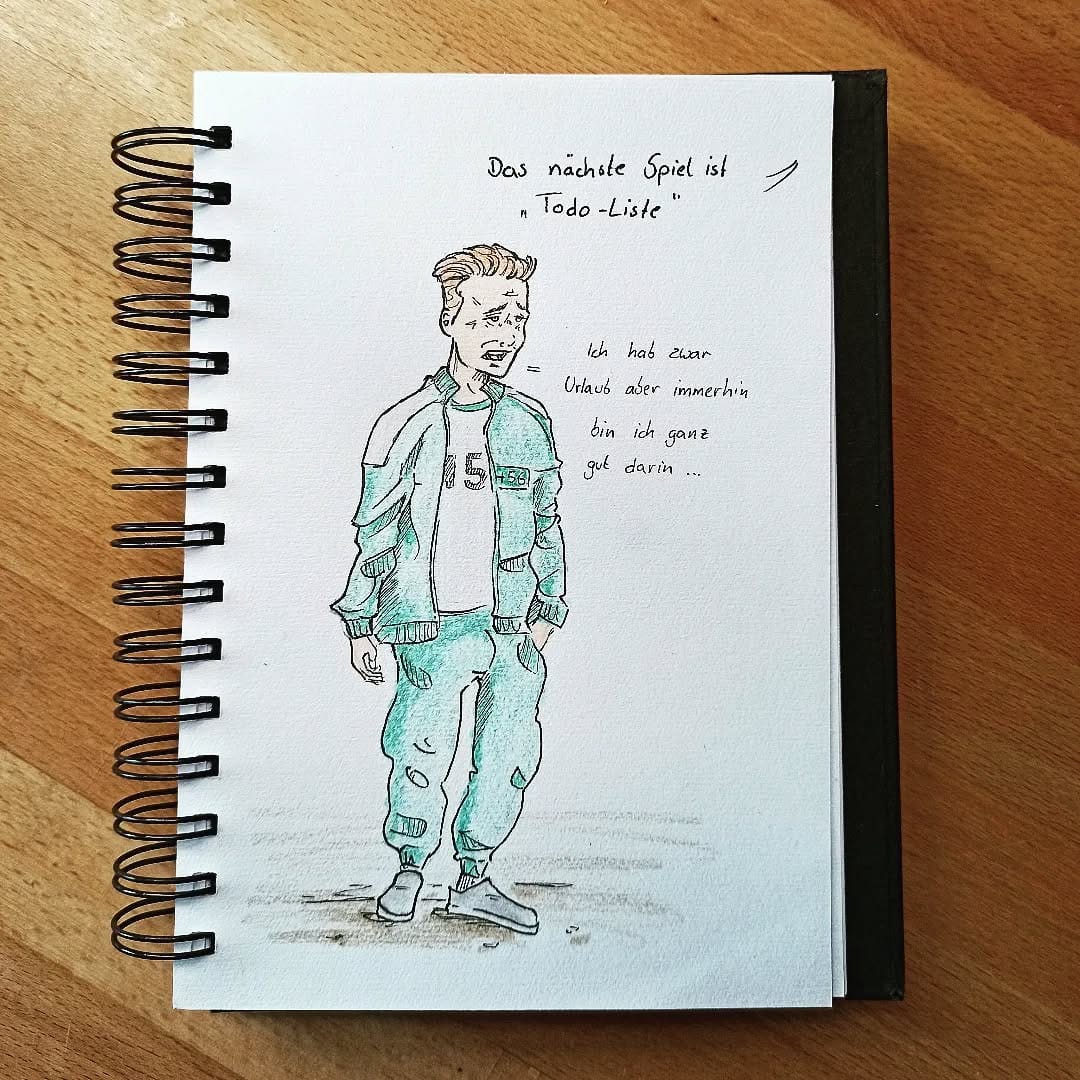 Das nächste Spiel ist
„Todo-Liste"
Ich hab zwar
Urlaub aber immerhin
bin ich ganz
gut darin ...